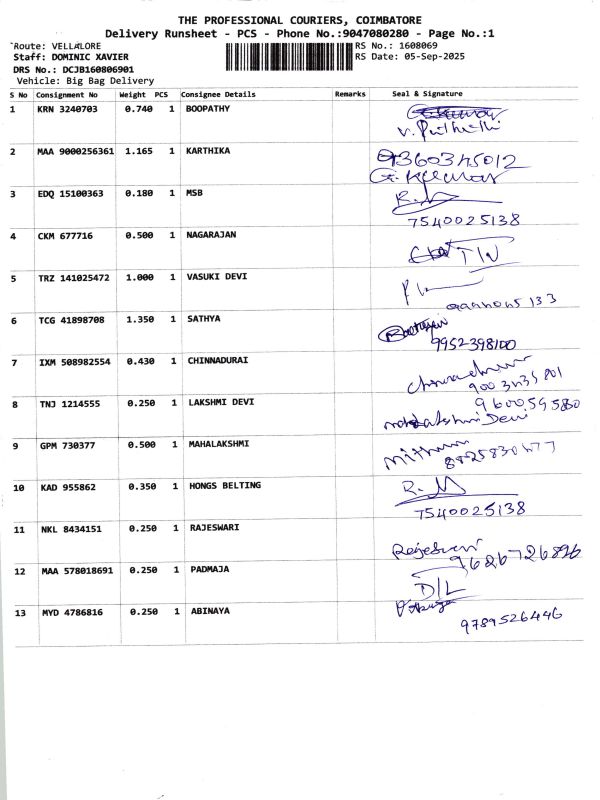 THE PROFESSIONAL COURIERS, COIMBATORE
Delivery Runsheet - PCS - Phone No.:9047080280 - Page No.:1
Route: VELLALORE RS No.: 1608069
Staff: DOMINIC XAVIER RS Date: 05-Sep-2025
DRS No.: DCJB160806901
Vehicle: Big Bag Delivery
S No Consignment No Weight PCS Consignee Details Remarks Seal & Signature
1 KRN 3240703 0.740 1 BOOPATHY
2 MAA 9000256361 1.165 1 KARTHIKA 9360345012
G. Kumar
3 EDQ 15100363 0.180 1 MSB
7540025138
4 CKM 677716 0.500 1 NAGARAJAN
5 TRZ 141025472 1.000 1 VASUKI DEVI
6 TCG 41898708 1.350 1 SATHYA
9952398100
7 IXM 508982554 0.430 1 CHINNADURAI
8 TNJ 1214555 0.250 1 LAKSHMI DEVI 9600595580
Lakshmi Devi
9 GPM 730377 0.500 1 MAHALAKSHMI
8825830477
10 KAD 955862 0.350 1 HONGS BELTING
7540025138
11 NKL 8434151 0.250 1 RAJESWARI
12 MAA 578018691 0.250 1 PADMAJA
D/L
13 MYD 4786816 0.250 1 ABINAYA
9789526446